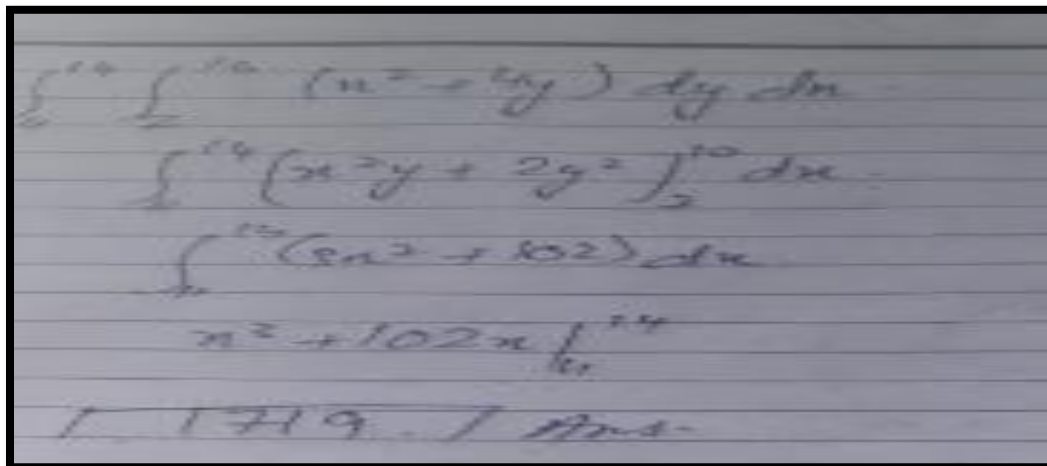 ∫ ¹⁴ ∫₂ ¹⁰ (x² + 4y) dy dx
∫ ¹⁴ (x²y + 2y²)₂ ¹⁰ dx
∫ (8x² + 102) dx
x² + 102x |¹⁴
1719 Ans.